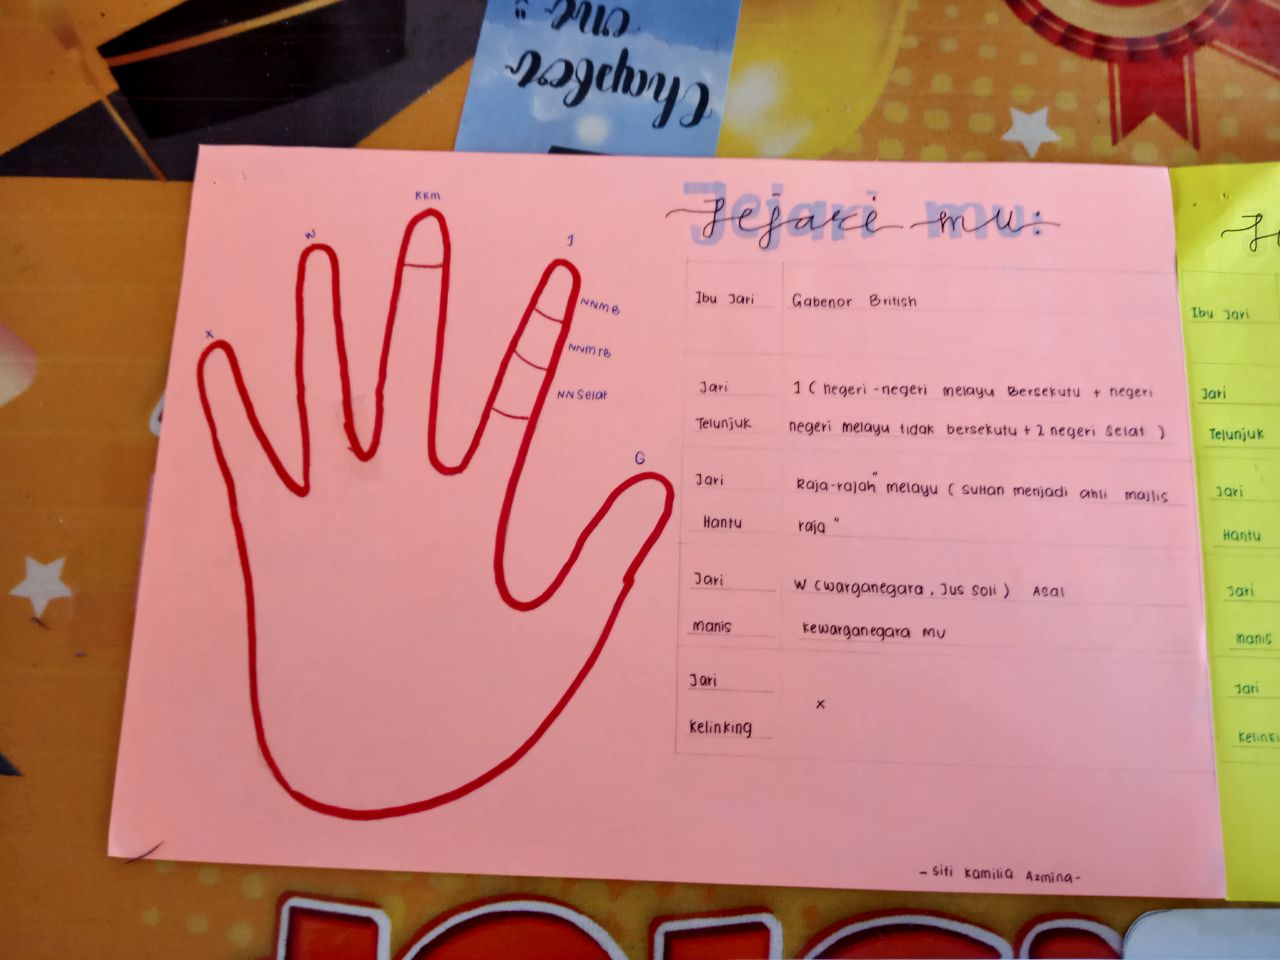 Chapter
one
Jejari mu:
KRM
W
J
X
NNMB
NNMTB
NN Selat
G
Ibu Jari Gabenor British
Jari 1 ( negeri-negeri melayu Bersekutu + negeri
Telunjuk negeri melayu tidak bersekutu + 2 negeri Selat )
Jari Raja-rajah" melayu ( sultan menjadi ahli majlis
Hantu raja"
Jari W (warganegara, Jus Soli) Asal
manis kewarganegara mu
Jari
kelinking x
- Siti Kamilia Azmina-
Ibu Jari
Jari
Telunjuk
Jari
Hantu
Jari
manis
Jari